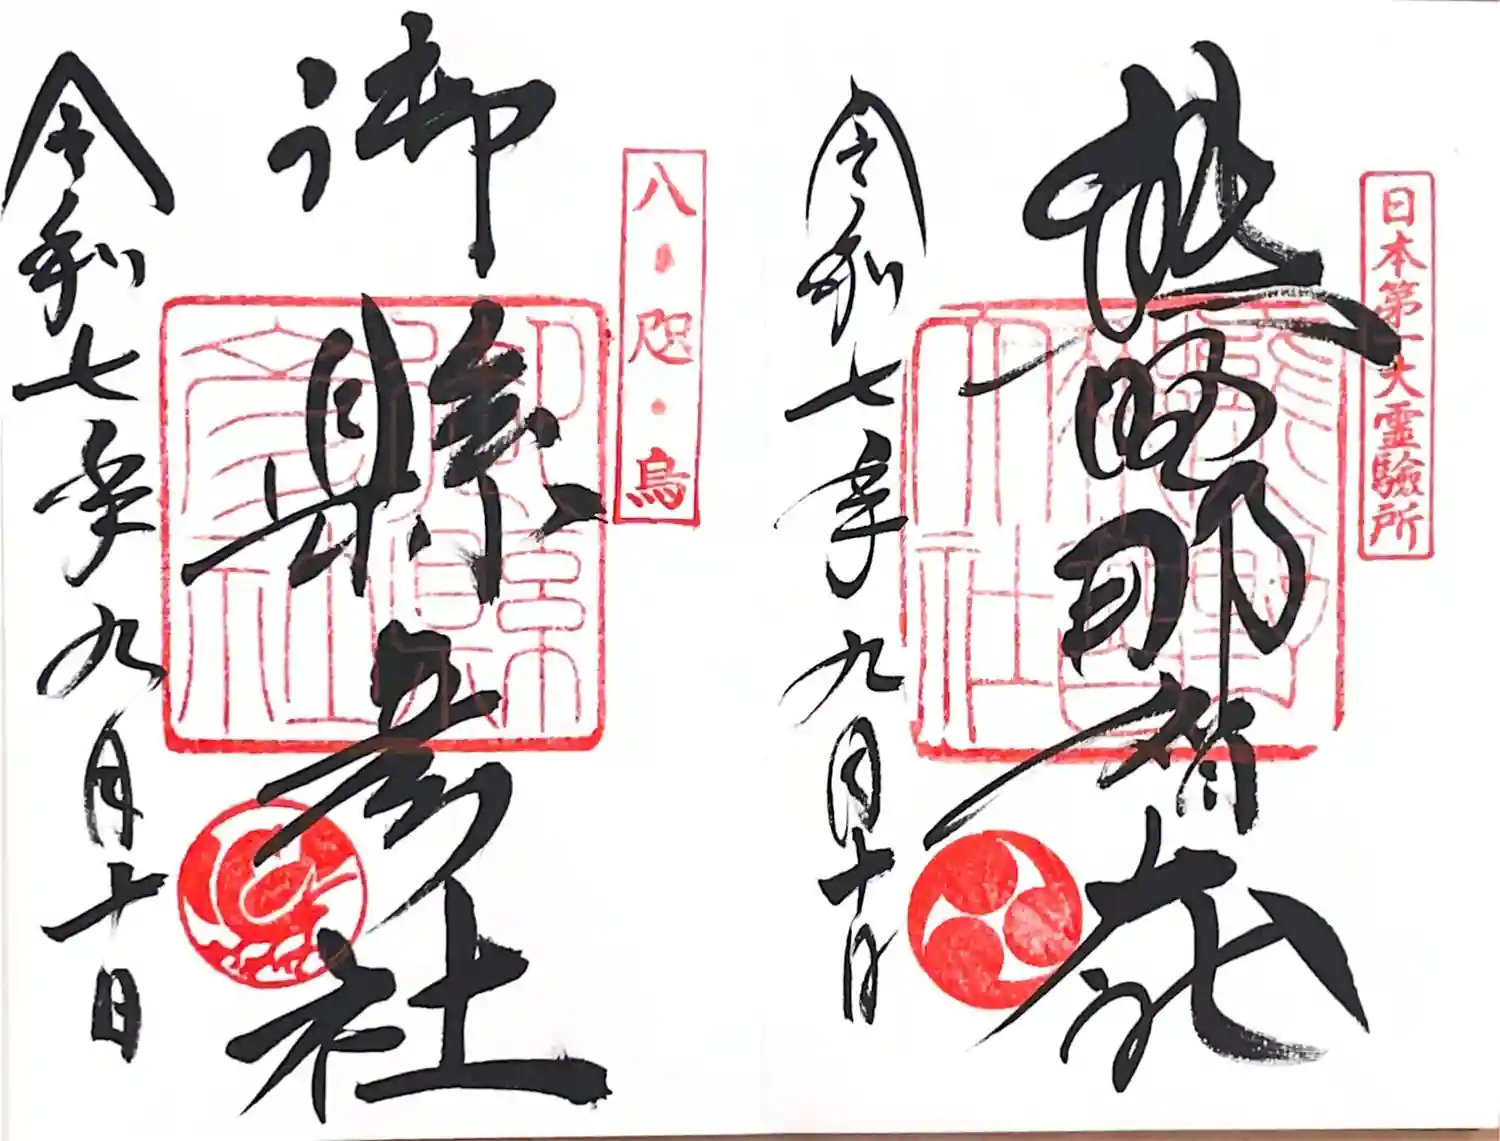 日本第一大霊驗所
熊野那智大社
令和七年九月十日
八・咫・烏
御縣彦社
令和七年九月十日
御縣彦社